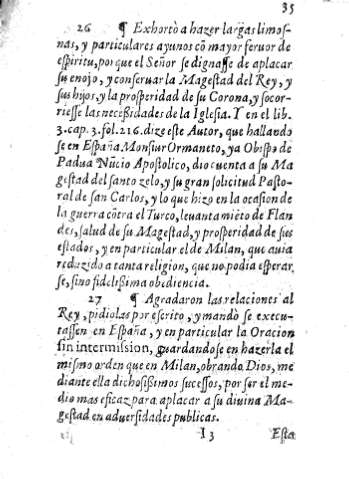 35
26 ¶ Exhortò a hazer largas limos-
nas, y particulares ayunos cõ mayor feruor de
espiritu, porque el Señor se dignasse de aplacar
su enojo, y conseruar la Magestad del Rey, y
sus hijos, y la prosperidad de su Corona, y socor-
riesse las necessidades de la Iglesia. Y en el lib.
3. cap. 3. fol. 216. dize este Autor, que hallando
se en España Monsiur Ormaneto, ya Obispo de
Padua Nũcio Apostolico, dio cuenta a su Ma
gestad del santo zelo, y su gran solicitud Pasto-
ral de san Carlos, y lo que hizo en la ocasion de
la guerra cõtra el Turco, leuantamiẽto de Flan
des, salud de su Magestad, y prosperidad de sus
estados, y en particular el de Milan, que auia
reduzido a tanta religion, que no podia esperar
se, sino fidelissima obediencia.
27 ¶ Agradaron las relaciones al
Rey, pidiolas por escrito, y mandò se execu-
tassen en España, y en particular la Oracion
sin intermission, guardandose en hazerla el
mismo orden que en Milan, obrando Dios, me
diante ella dichosissimos sucessos, por ser el me-
dio mas eficaz para aplacar a su diuina Ma-
gestad en aduersidades publicas.
I 3 Esta